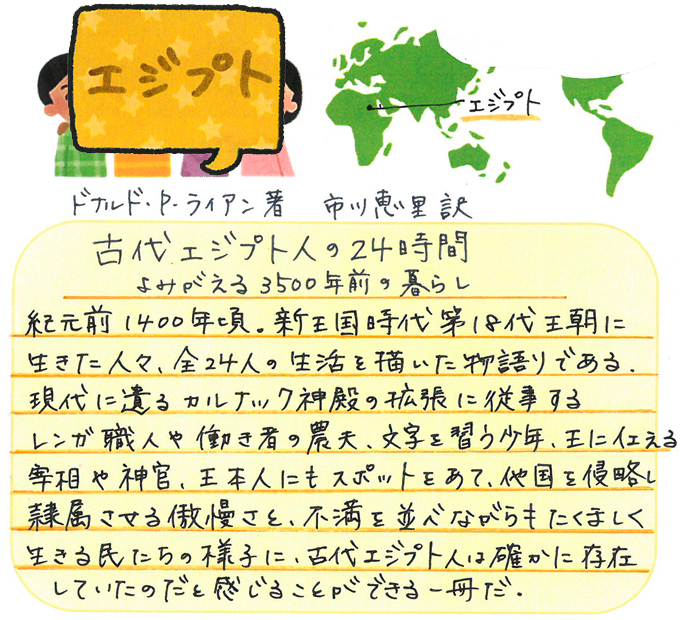 エジプト
エジプト
ドナルド・P・ライアン著 市川恵里訳
古代エジプト人の24時間
よみがえる3500年前の暮らし
紀元前1400年頃。新王国時代第18代王朝に
生きた人々、全24人の生活を描いた物語りである.
現代に遺るカルナック神殿の拡張に従事する
レンガ職人や働き者の農夫、文字を習う少年、王に仕える
宰相や神官、王本人にもスポットをあて、他国を侵略し
隷属させる傲慢さと、不満を並べながらもたくましく
生きる民たちの様子に、古代エジプト人は確かに存在
していたのだと感じることができる一冊だ.